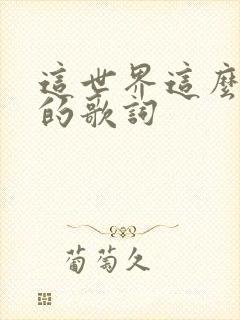 這世界這麼
的歌詞
葡萄久